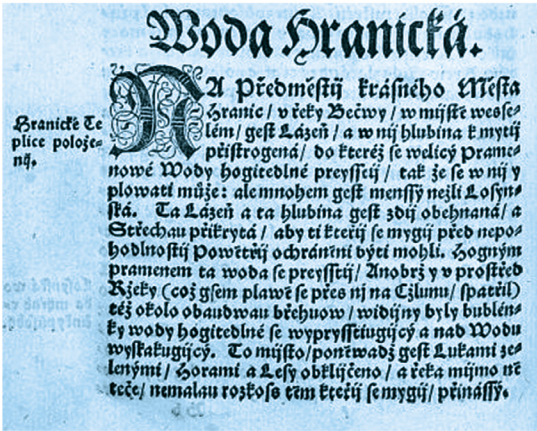 Woda Hranická.
NA Předměstij krásného Města
Hranic / v řeky Bečwy / w mijstě wesse-
lém / gest Lázeň / a w nij hlubina k mytij
přistrogená / do kteréž se welicý Prame-
nowé Wody hogitedlné preysstij / tak že se w nij y
plowati může: ale mnohem gest menssý nežli Losyn-
ská. Ta Lázeň a ta hlubina gest zdij obehnaná / a
Střechau přikrytá / aby ti kteřij se mygij před nepo-
hodlnostij Powětřij ochráněni býti mohli. Hogným
pramenem ta woda se preysstij / Anobrž y v prostřed
Ržeky (což gsem plawě se přes nj na Cžlunu / spatřil)
též okolo obaudwau břehuow / widijny byly bublén-
ky wody hogitedlné se wyprysstiugijcý a nad Wodu
wyskakugijcý. To mijsto / poněwadž gest Lukami ze-
lenými / Horami a Lesy obklijčeno / a řeka mijmo ně
teče / nemalau rozkoss těm kteřij se mygij / přinássý.
Hranické Te
plice polože-
nij.